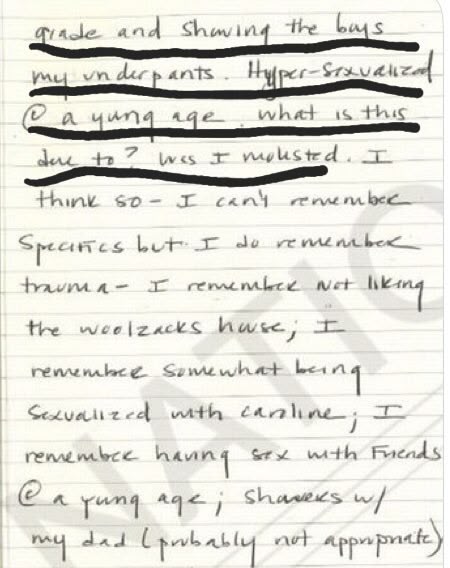 grade and showing the boys
my underpants. Hyper-sexualized
@ a yung age. what is this
due to? Was I molested. I
think so - I can't remember
specifics but I do remember
trauma - I remember not liking
the woolzacks house; I
remember somewhat being
sexualized with caroline; I
remember having sex with Friends
@ a yung age; showers w/
my dad (probably not appropriate)
NATIO